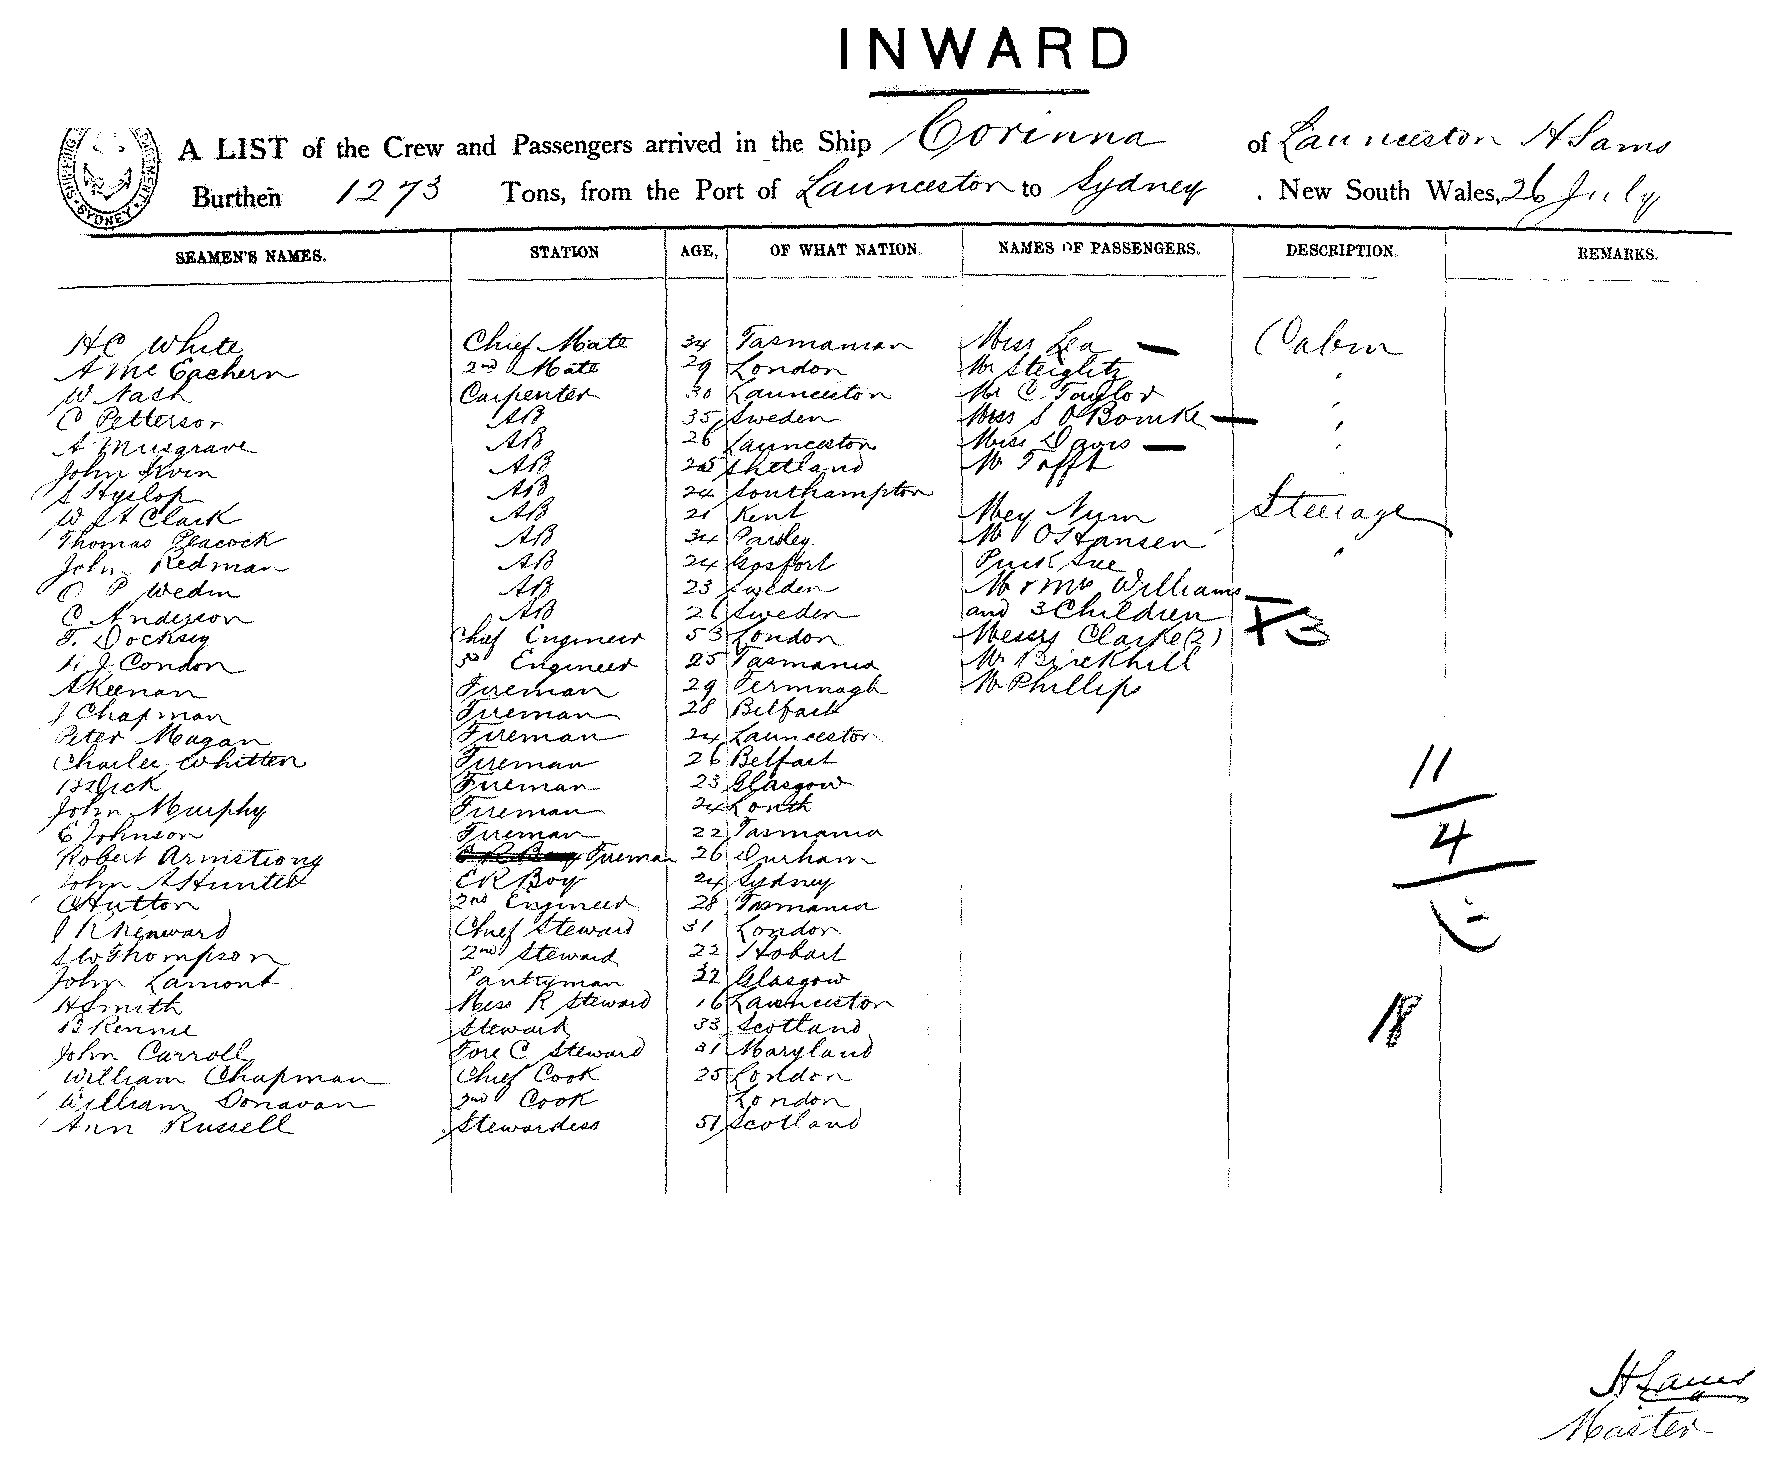 INWARD
A LIST of the Crew and Passengers arrived in the Ship Corinna of Launceston H Sams
Burthen 1273 Tons, from the Port of Launceston to Sydney . New South Wales, 26 July
SEAMEN'S NAMES. STATION AGE, OF WHAT NATION. NAMES OF PASSENGERS. DESCRIPTION. REMARKS.
HC White Chief Mate 34 Tasmanian Miss Lea — Cabin
A McEachern 2nd Mate 29 London Mr Steiglitz "
W Nash Carpenter 30 Launceston Mr C Taylor "
C Petterson AB 35 Sweden Miss S O'Bourke — "
A Musgrave AB 26 Launceston Miss Davis — "
John Irvin AB 25 Shetland Mr Tofft
S Hyslop AB 24 Southampton
W St Clark AB 21 Kent Mey Num Steerage
Thomas Peacock AB 34 Paisley Mr O Hansen "
John Redman AB 24 Gosport Sue
P Wedin AB 23 Sweden Mr & Mrs Williams
C Anderson AB 26 Sweden and 3 Children
T. Docksey Chief Engineer 53 London Messrs Clarke (2) F 3
J Condon 3rd Engineer 25 Tasmania Mr Birckhill
A Keenan Fireman 29 Fermnagh Mr Phillips
J Chapman Fireman 28 Belfast
Peter Magan Fireman 24 Launceston
Charles Whitten Fireman 26 Belfast 11
Dick Fireman 23 Glasgow
John Murphy Fireman 24 Louth
E Johnson Fireman 22 Tasmania 4
Robert Armstrong Fireman 26 Durham
John A Hunter ER Boy 24 Sydney
C Hutton 2nd Engineer 28 Tasmania
Kenward Chief Steward 31 London
S W Thompson 2nd Steward 22 Hobart
John Lamont Pantryman 22 Glasgow
H Smith Mess R Steward 16 Launceston
B Rennie Steward 33 Scotland 18
John Carroll Fore C Steward 31 Maryland
William Chapman Chief Cook 25 London
William Donavan 2nd Cook London
Ann Russell Stewardess 51 Scotland
H Sams
Master